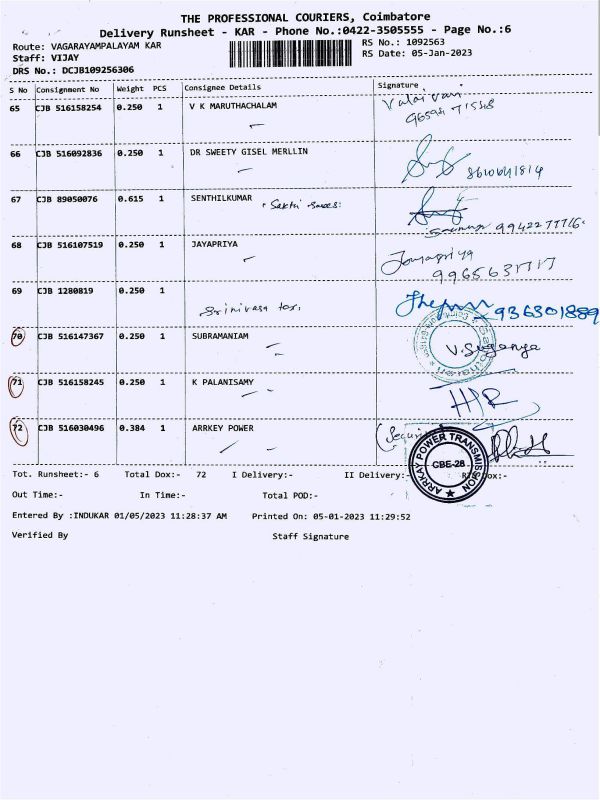 THE PROFESSIONAL COURIERS, Coimbatore
Delivery Runsheet - KAR - Phone No.:0422-3505555 - Page No.:6
Route: VAGARAYAMPALAYAM KAR
RS No.: 1092563
Staff: VIJAY
RS Date: 05-Jan-2023
DRS No.: DCJB109256306
S No Consignment No Weight PCS Consignee Details Signature
65 CJB 516158254 0.250 1 V K MARUTHACHALAM
66 CJB 516092836 0.250 1 DR SWEETY GISEL MERLLIN
67 CJB 89050076 0.615 1 SENTHILKUMAR
9942277716
68 CJB 516107519 0.250 1 JAYAPRIYA Jayapriya
69 CJB 1280819 0.250 1
Srinivasa tex. 936301889
70 CJB 516147367 0.250 1 SUBRAMANIAM V. Suganya
71 CJB 516158245 0.250 1 K PALANISAMY
72 CJB 516030496 0.384 1 ARRKEY POWER
ARRKAY POWER TRANSMISSION
CBE-28
Tot. Runsheet:- 6 Total Dox:- 72 I Delivery:- II Delivery:-
Out Time:- In Time:- Total POD:-
Entered By :INDUKAR 01/05/2023 11:28:37 AM Printed On: 05-01-2023 11:29:52
Verified By Staff Signature